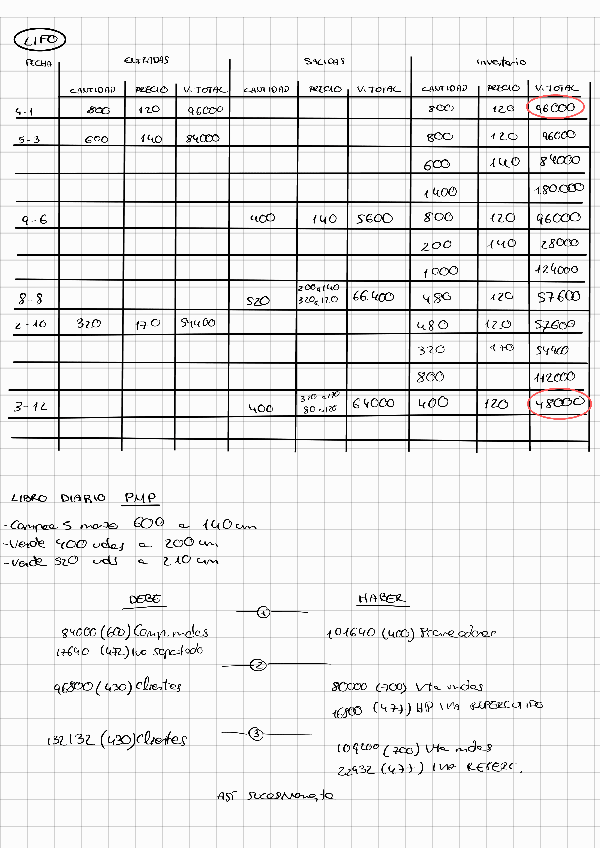 LIFO
FECHA ENTRADAS SALIDAS Inventario
CANTIDAD PRECIO V. TOTAL CANTIDAD PRECIO V. TOTAL CANTIDAD PRECIO V. TOTAL
4-1 800 120 96000 800 120 96000
5-3 600 140 84000 800 120 96000
600 140 84000
1400 180.000
9-6 400 140 5600 800 120 96000
200 140 28000
1000 124000
8-8 520 200a140 320a120 66.400 480 120 57600
2-10 320 170 54400 480 120 57600
320 170 54400
800 112000
3-12 400 320 a 170 80 a 120 64000 400 120 48000
LIBRO DIARIO PMP
-Compra 5 marzo 600 a 140 um
-Vende 400 udes a 200 um
-Vende 520 uds a 210 um
DEBE HABER
1
84000 (600) Comp. mdas 101640 (400) Proveedores
17640 (472) Iva soportado
2
96800 (430) Clientes 80000 (700) Vta mdas
16800 (477) HP IVA REPERCUTIDO
3
132132 (430) Clientes 109200 (700) Vta mdas
22932 (477) IVA REPERC.
ASÍ SUCESIVAMENTE